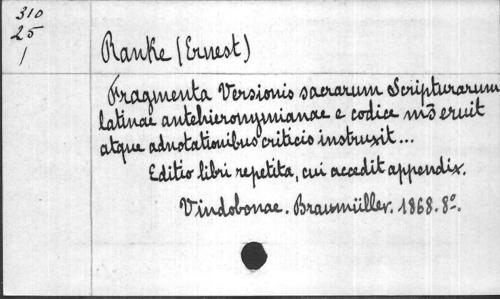 310
25
1
Ranke (Ernest)
Fragmenta Versionis sacrarum Scripturarum
latinae antehieronymianae e codice ms eruit
atque adnotationibus criticis instruxit...
Editio libri repetita, cui accedit appendix.
Vindobonae. Braumüller. 1868. 8º.